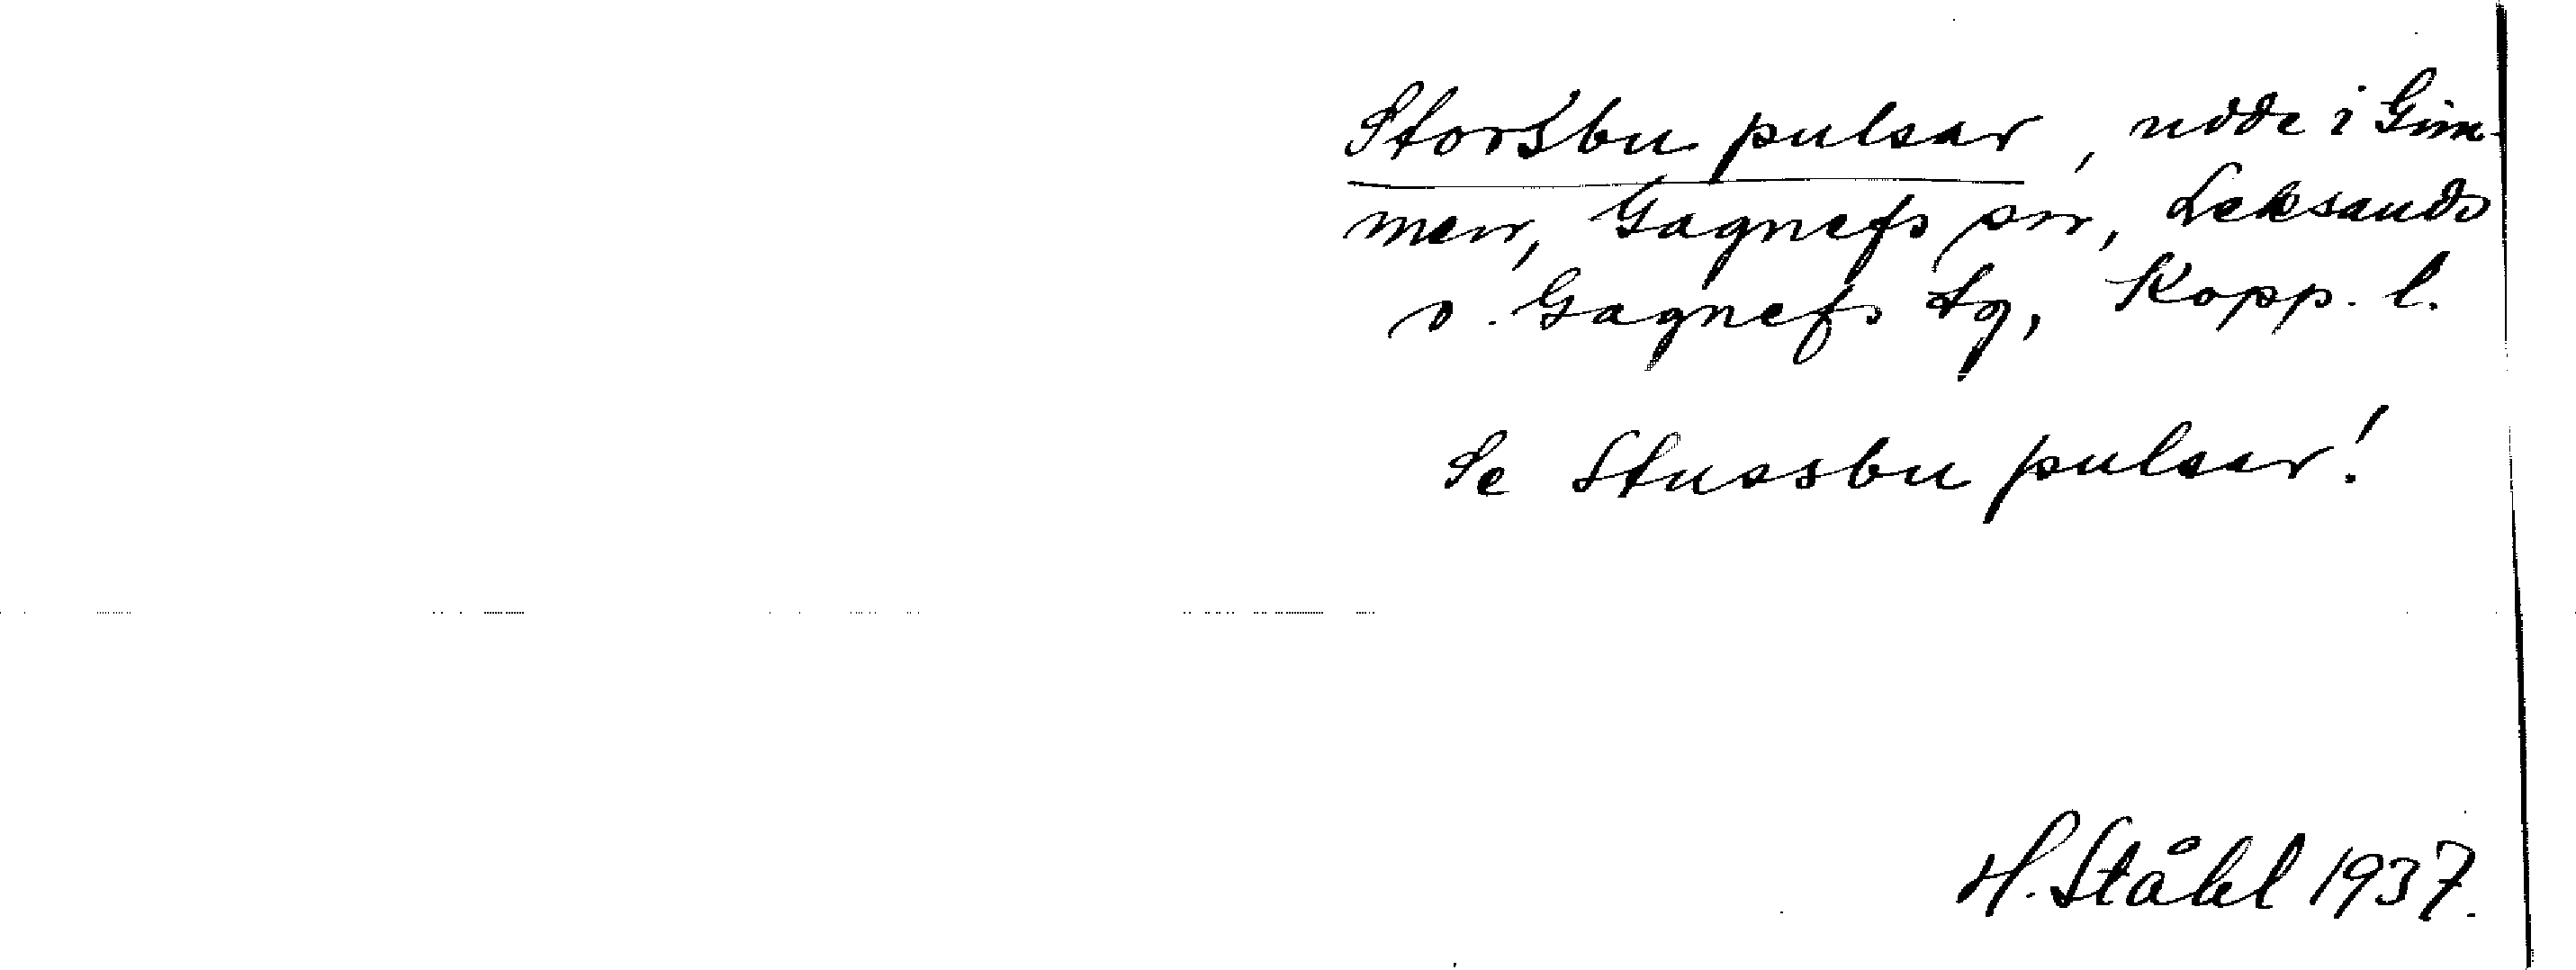 Storsbu pulsar, udde i Gim-
men, Gagnefs sn, Leksands
o. Gagnefs tg, Kopp. l.
Se Stussbu pulsar!
H. Ståhl 1937.